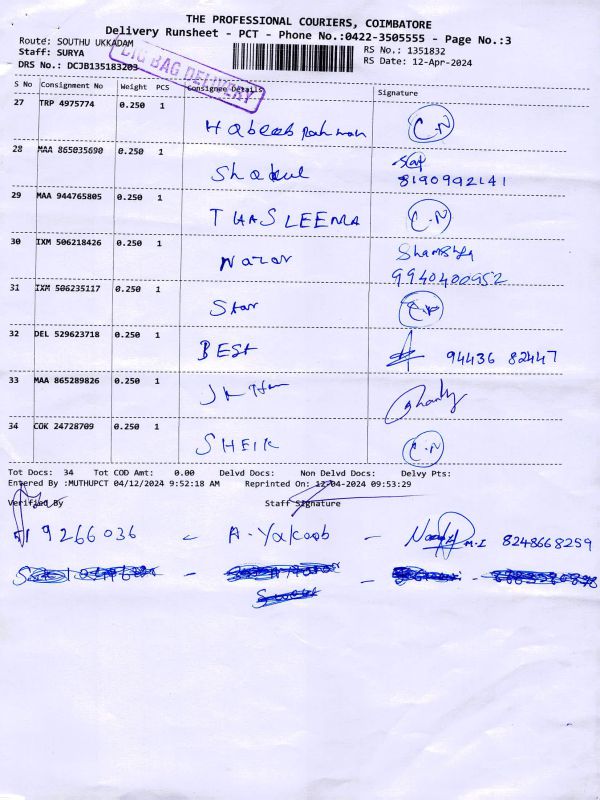 THE PROFESSIONAL COURIERS, COIMBATORE
Delivery Runsheet - PCT - Phone No.:0422-3505555 - Page No.:3
Route: SOUTHU UKKADAM
RS No.: 1351832
Staff: SURYA
RS Date: 12-Apr-2024
DRS No.: DCJB135183203
BIG BAG DELIVERY
S No Consignment No Weight PCS Consignee Details Signature
27 TRP 4975774 0.250 1 Habeeb Rahman C.N
28 MAA 865035690 0.250 1 Shakul 8190992141
29 MAA 944765805 0.250 1 THASLEEMA C.N
30 IXM 506218426 0.250 1 Nazar 9940400952
31 IXM 506235117 0.250 1 Star
32 DEL 529623718 0.250 1 BEST 94436 82447
33 MAA 865289826 0.250 1
34 COK 24728709 0.250 1 SHEIK C.N
Tot Docs: 34 Tot COD Amt: 0.00 Delvd Docs: Non Delvd Docs: Delvy Pts:
Entered By :MUTHUPCT 04/12/2024 9:52:18 AM Reprinted On: 12-04-2024 09:53:29
Verified By Staff Signature
9266036 - A-Yakoob - M.I 8248668259